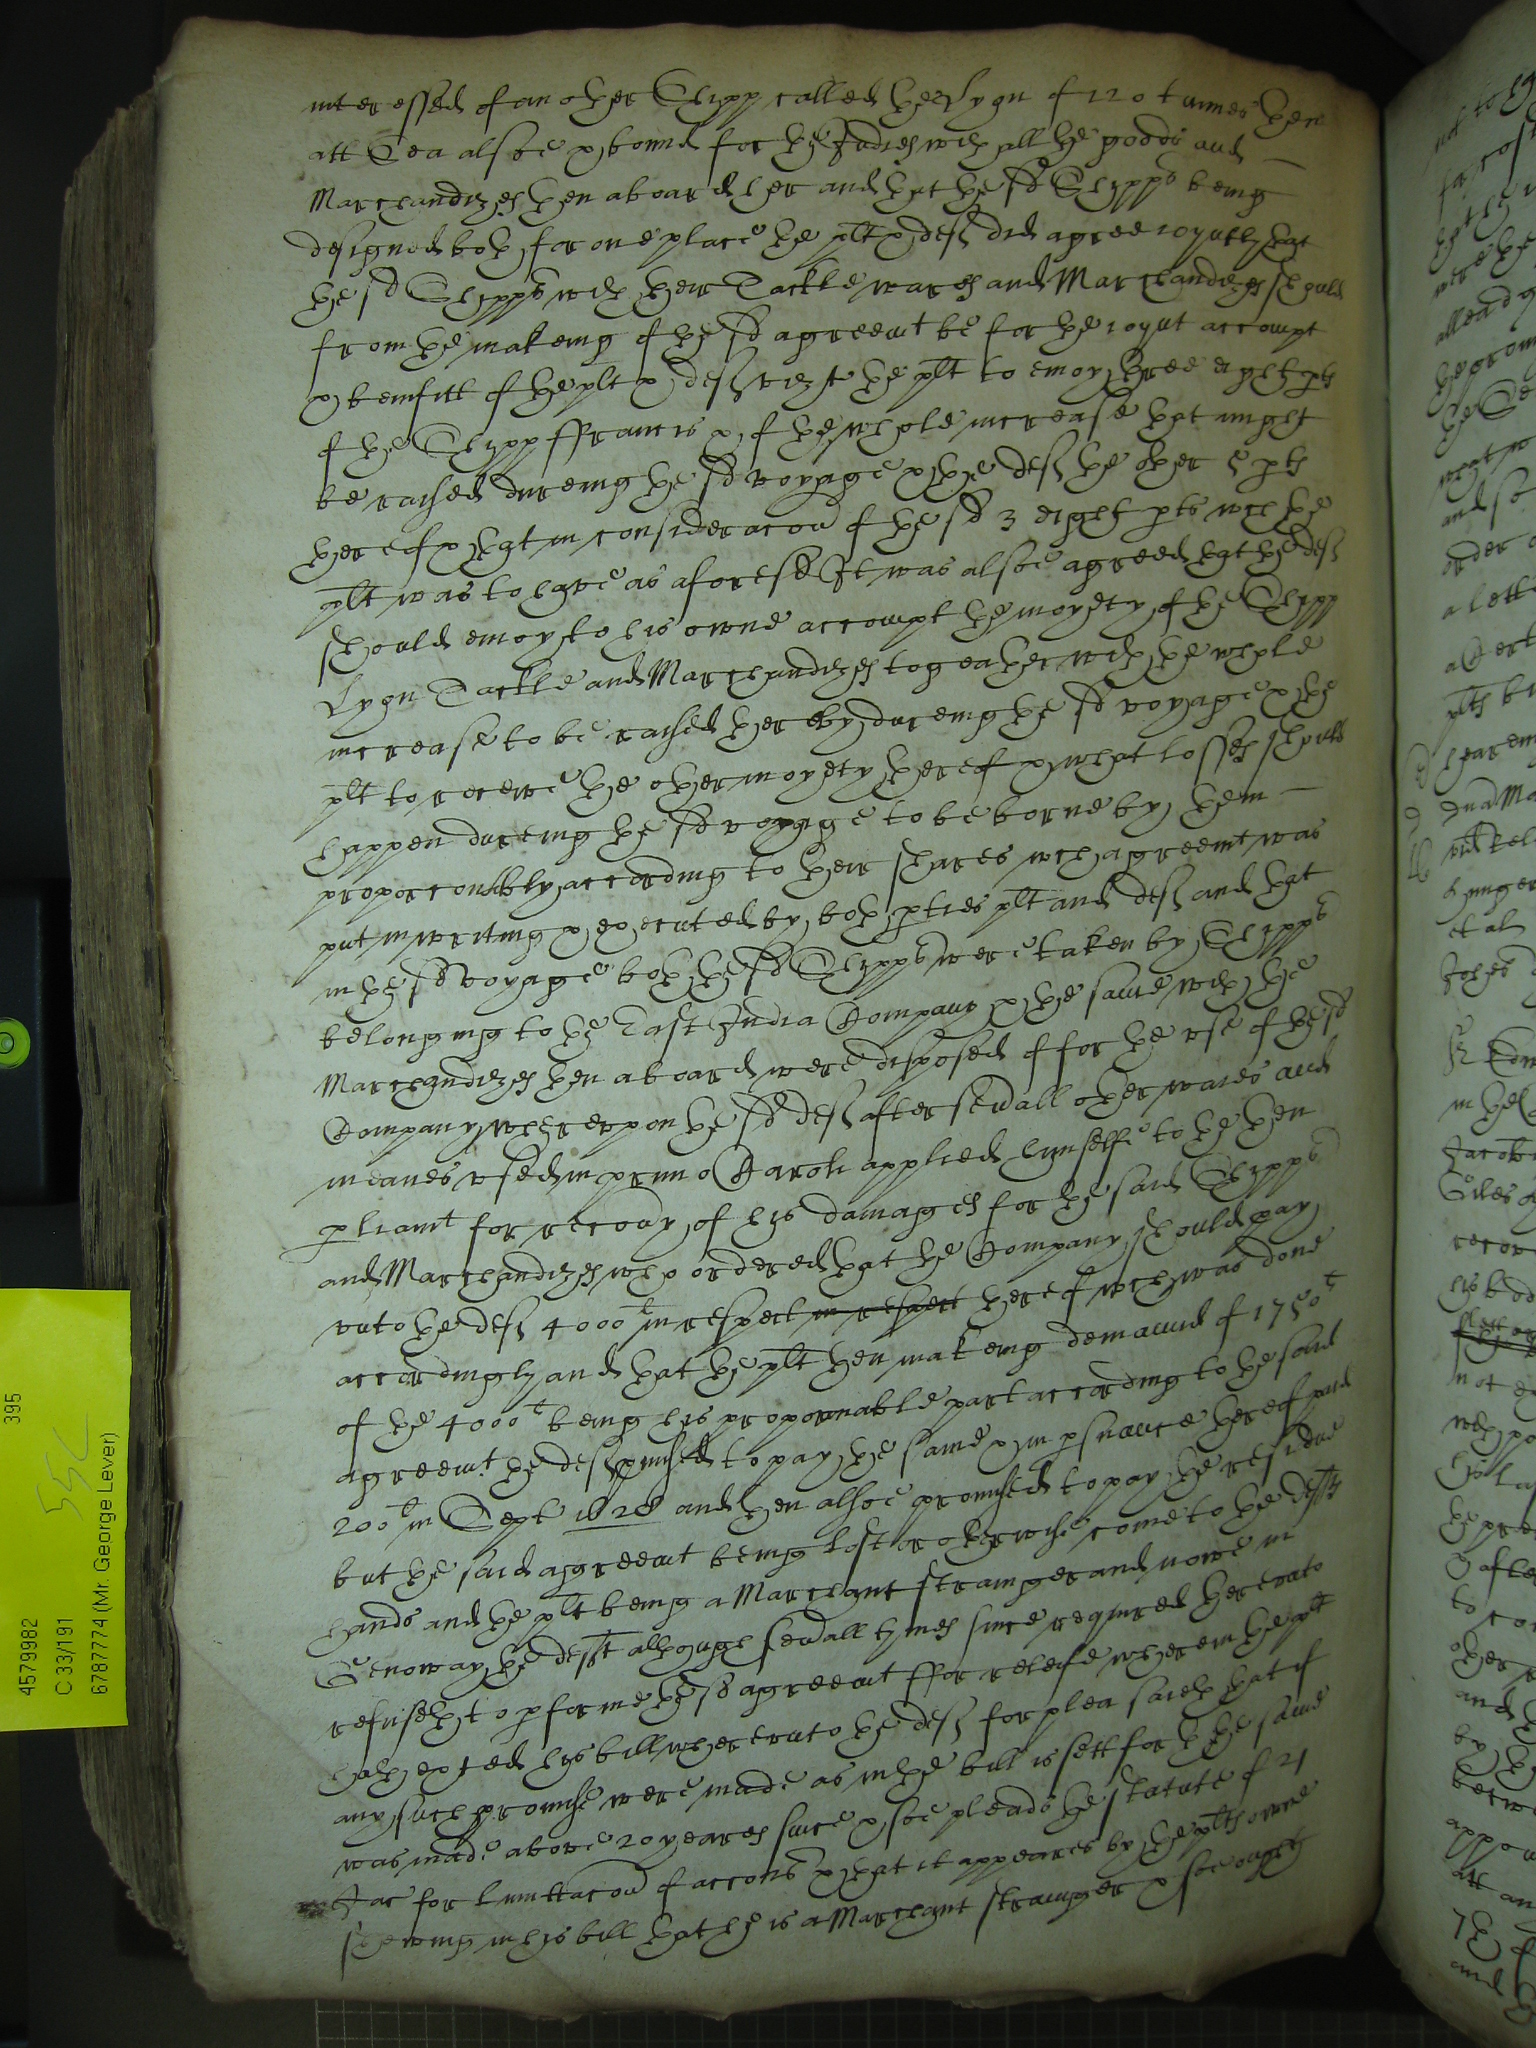 interessed of an other Shipp called the Lyon of 120 tunnes then
att Sea alsoe & bound for the Indies with all the goods and
Marchandizes then aboard her and that the sd Shipps being
designed both for one place the plt & deft did agree ioyntly that
the sd Shipps with their Tackle wares and Marchandizes should
from the makeing of the sd agreemt be for the ioynt accompt
& benifitt of the plt & deft vizt the plt to enioy three eight pts
of the Shipp ffrancis & of the whole increase that might
be raised dureing the sd voyage & the deft the other 5 pts
thereof & that in consideracon of the sd 3 eight pts wch the
plt was to have as aforesd It was alsoe agreed that the deft
should enioy to his owne accompt the moyety of the Shipp
Lyon Tackle and Marchandizes togeather with the whole
increase to be raised thereby dureing the sd voyage & the
plt to receive the other moyety thereof & what losses should
happen dureing the sd voyage to be borne by them
proporconably according to their shares wch agreemt was
put in writing & executed by both pties plt and deft and that
in the sd voyage both the sd Shipps were taken by Shipps
belonging to the East India Company & the same with the
Marchandizes then aboard were disposed of for the use of the sd
Company whereupon the sd deft after sevall other waies and
meanes used in primo Caroli applied himselfe to the then
pliamt for recovy of his damages for the said Shipps
and Marchandizes who ordered that the Company should pay
unto the deft 4000l in respect in respect thereof wch was done
accordingly and that the plt then makeing demaund of 1750l
of the 4000l being his proporonable part according to the said
agreemt the deft pmised to pay the same & in psuance thereof paid
200l in Sept 1628 and then alsoe promised to pay the residue
but the said agreemt being lost or otherwise come to the defts
hands and the plt being a Marchant stranger and nowe in
Genoway the deft although sevall tymes since required thereunto
refuseth to pforme the sd agreemt ffor releife wherein the plt
hath exted his bill whereunto the deft for plea saieth that if
any such promise were made as in the bill is sett forth the same
was made above 20 yeares since & soe pleads the statute of 21
Jac for limittacon of accons & that it appeares by the plts owne
shewing in his bill that he is a Marchant stranger & soe ought
4579982
C 33/191 395
55C
6787774 (Mr. George Lever)